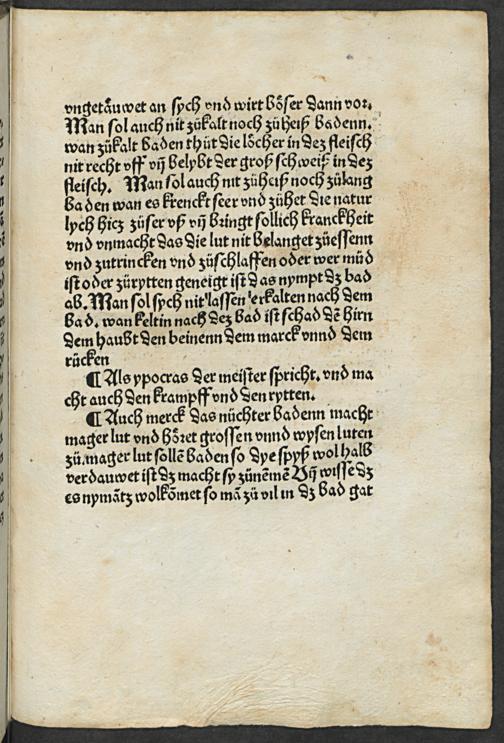 vngetåuwet an sych vnd wirt böser dann vor.
Man sol auch nit zůkalt noch zů heiß badenn.
wan zůkalt baden thůt die löcher in dez fleisch
nit recht vff vñ belybt der groß schweiß in dez
fleisch. Man sol auch nit zů heiß noch zůlang
baden wan es krenckt seer vnd zühet die natur
lych hicz züser vß vñ bringt sollich kranckheit
vnd vnmacht das die lut nit belanget züessenn
vnd zutrincken vnd züschlaffen oder wer müd
ist oder zürytten geneigt ist das nympt dz bad
ab. Man sol sych nit lassen erkalten nach dem
bad. wan keltin nach dez bad ist schad dē hirn
dem haubt den beinenn dem marck vnnd dem
rücken
¶ Als ypocras der meister spricht. vnd ma
cht auch den krampff vnd den rytten.
¶ Auch merck das nüchter badenn macht
mager lut vnd höret grossen vnnd wysen luten
zů. mager lut sollē baden so dye spyß wol halb
verdauwet ist dz macht sy zünemē Vñ wisse dz
es nymātz wolkōmet so mā zü vil in dz bad gat